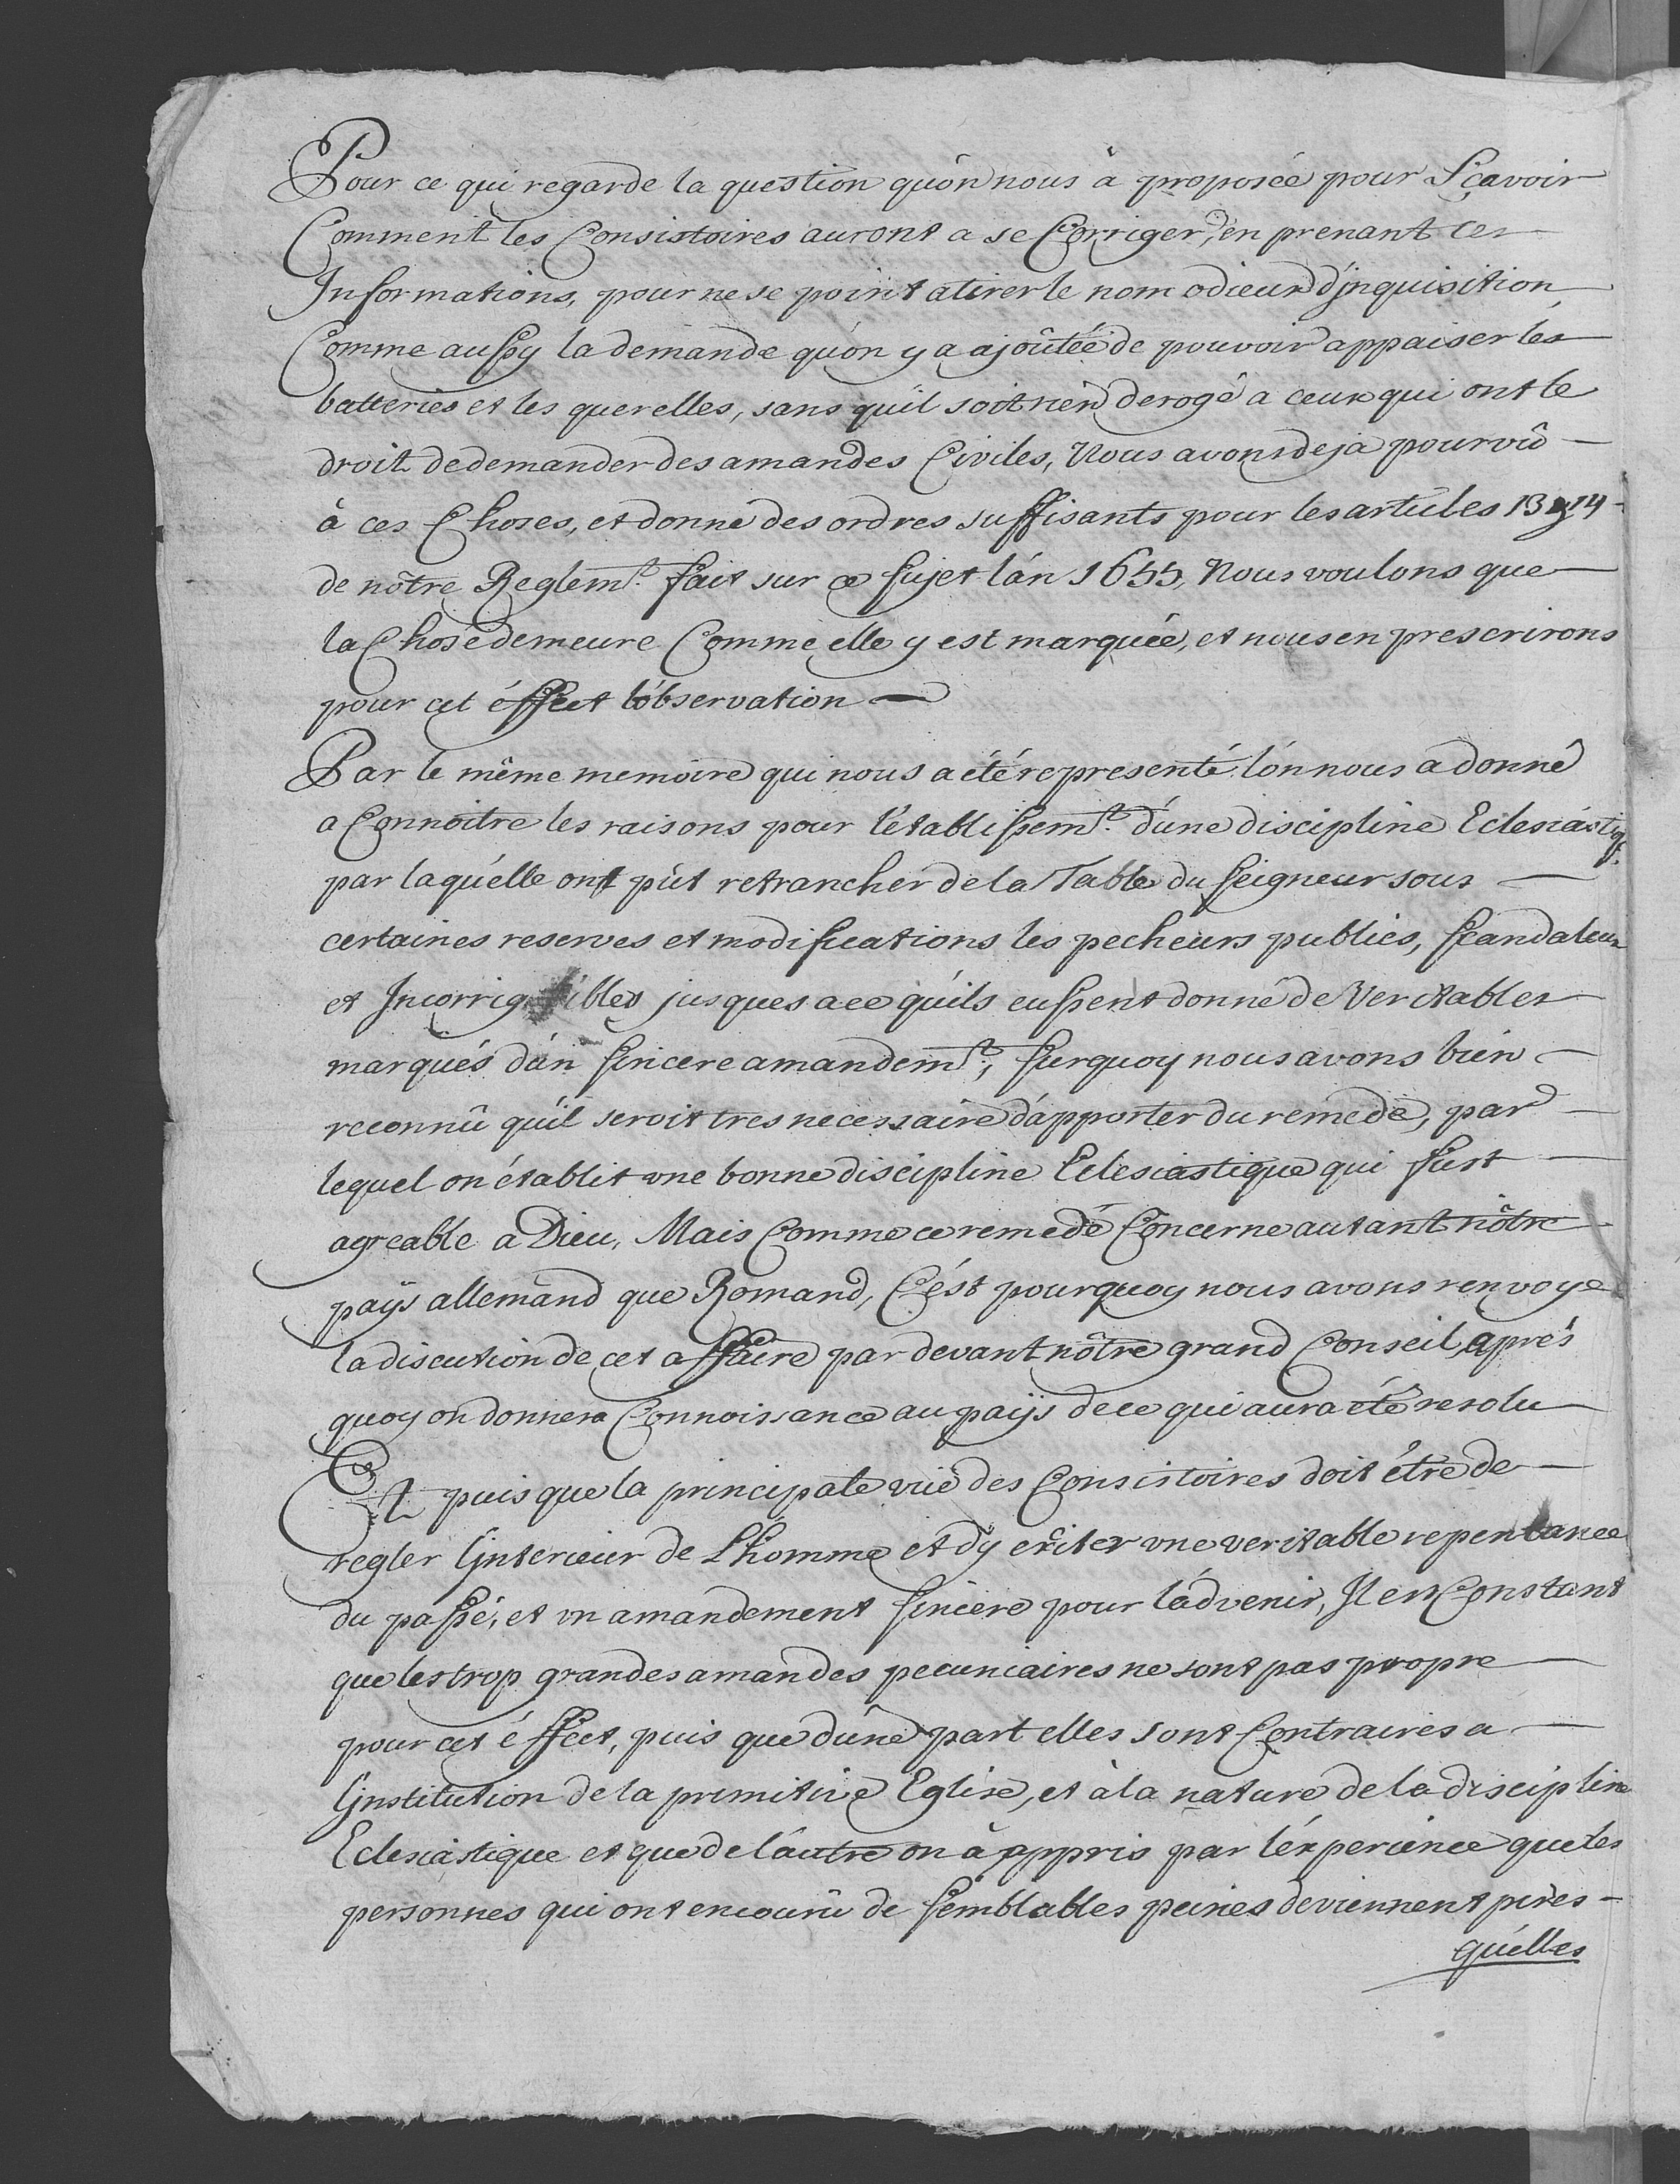 Pour ce qui regarde la question qu'on nous à proposée pour Sçavoir
Comment les Consistoires auront a se Corriger, en prenant ces
Informations, pour ne se point atirer le nom odieux d'jnquisition
Comme aussy la demande qu'on y a ajoûtée de pouvoir appaiser les
batteries et les querelles, sans qu'il soit rien derogé a ceux qui ont le
droit de demander des amandes Civiles, Nous avons deja pourvû
à ces Choses, et donné des ordres suffisants pour les articles 13 14
de nôtre Reglemt. fait sur ce sujet l'an 1655, Nous voulons que
la Chose demeure Comme elle y est marquée, et nous en prescrirons
pour cet éffect l'observation
Par le même memoire qui nous a été representé l'on nous a donné
a Connoitre les raisons pour l'établissemt. d'une discipline Eclesiastiq.
par laquélle ont pût retrancher de la Table du Seigneur sous
certaines reserves et modifications les pecheurs publics, scandaleux
et Incorrigibles jusques a ce qu'ils eussent donné de Veritables
marqués d'un sincere amandemt., surquoy nous avons bien
reconnû qu'il seroit tres necessaire d'apporter du remede, par
lequel on établit une bonne discipline Eclesiastique qui fust
agreable a Dieu, Mais Comme ce remede Concerne autant nôtre
païs allemand que Romand, C'est pourquoy nous avons renvoye
la discution de cet affaire par devant nôtre grand Conseil, aprés
quoy on donnera Connoissance au païs de ce qui aura été resolu
Et puis que la principale vuë des Consistoires doit être de
regler l'jnterieur de L'homme et d'y exiter une veritable repentance
du passé, et un amandement sincere pour l'advenir, Il est Constant
que les trop grandes amandes pecuniaires ne sont pas propre
pour cet éffect, puis que d'une part elles sont Contraires a
l'jnstitution de la primitive Eglise, et à la nature de la discipline
Eclesiastique et que de l'autre on à appris par l'éxperience que les
personnes qui ont encouru de semblables peines deviennent pires
qu'elles